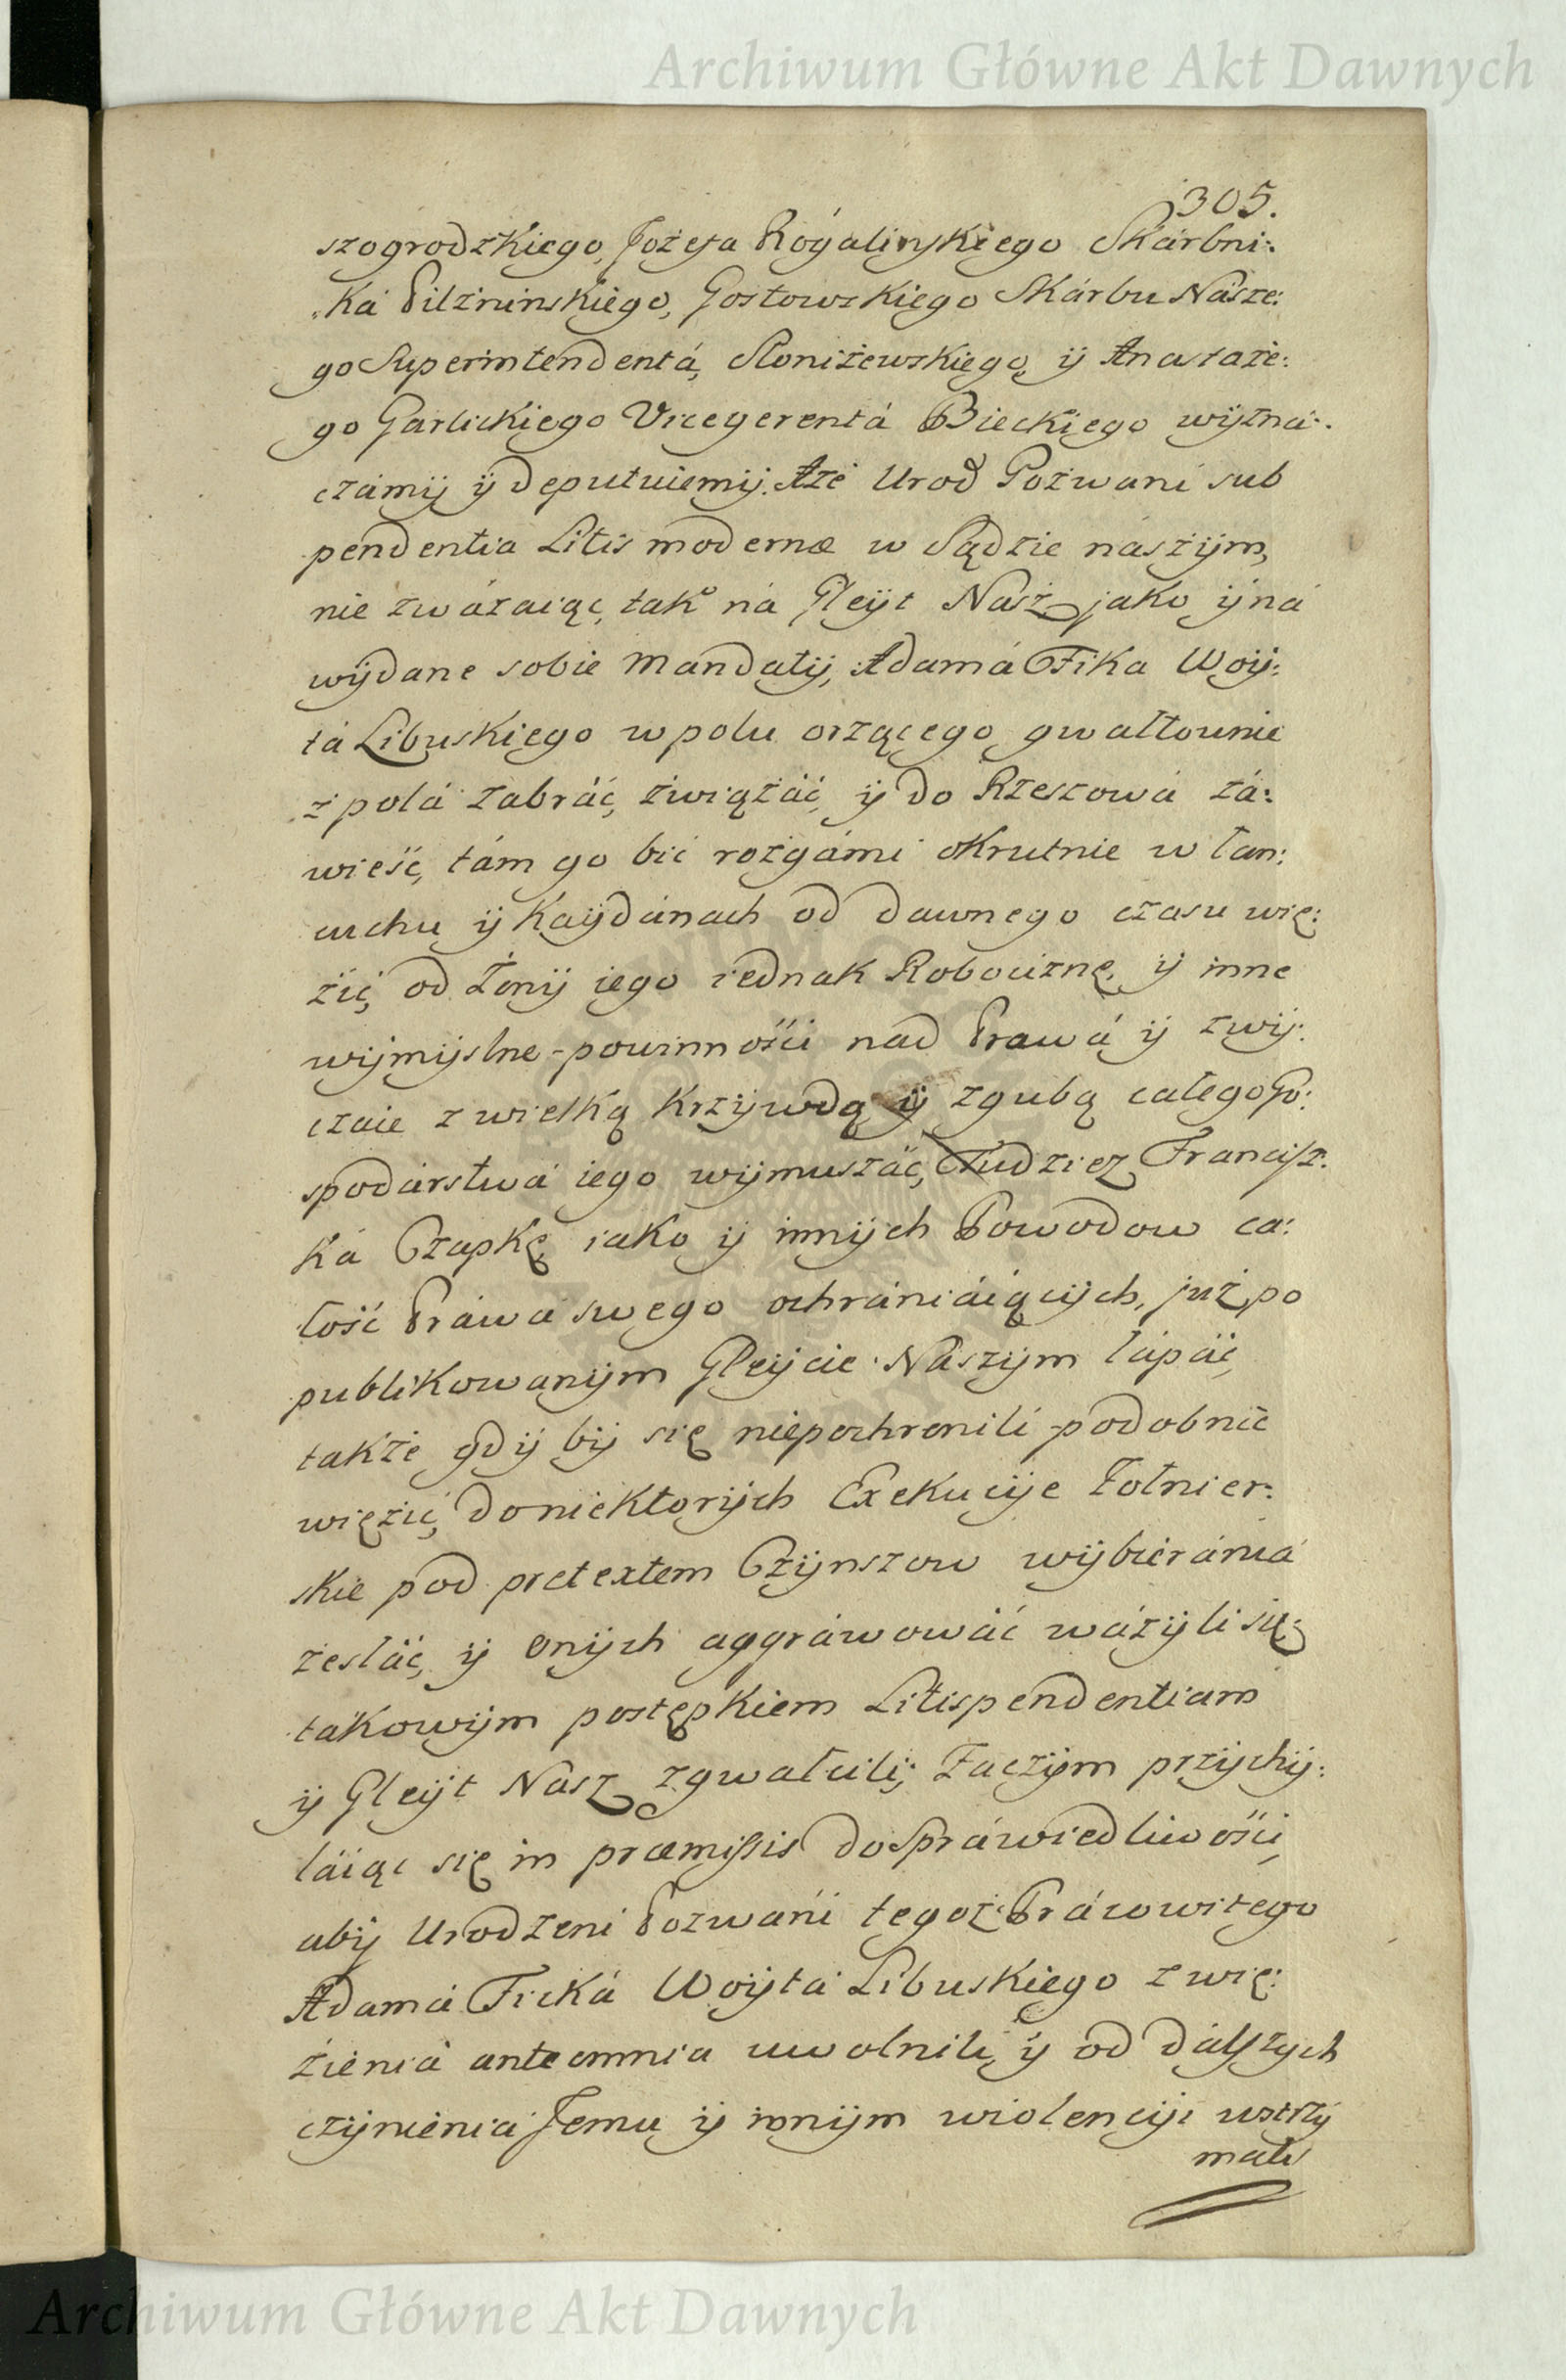 Archiwum Główne Akt Dawnych
305.
szogrodzkiego, Jozefa Rogalinskiego Skárbni:
ká Pilzninskiego, Gostowskiego Skárbu Násze:
go Superintendentá, Słoniżewskiego, ÿ Anastáze:
go Garlickiego Vicegerentá Bieckiego wÿzná:
czámÿ ÿ deputuiemÿ. Aże Urod Pozwani sub
pendentia Litis modernæ w Sądzie naszÿm,
nie zwázaiąc, tak na Gleÿt Nász jako ÿ ná
wÿdane sobie Mandatÿ, Adamá Fika Woÿ:
tá Libuskiego w polu orzącego gwałtownie
z polá zabráć, związáć, ÿ do Rzeszowá zá:
wieść, tám go bić rozgámi okrutnie w łan:
cuchu ÿ Kaÿdánach od dawnego czasu wię:
źić, od Żonÿ iego iednak Robociznę, ÿ inne
wÿmÿslne powinnośći nad Prawá ÿ zwÿ:
czaie z wielką krzÿwdą ÿ zgubą całego Go:
spodárstwá iego wÿmuszáć, Tudziez Francisz:
ká Czapkę, iako ÿ innÿch Powodow ca:
łość Práwá swego ochrániáiącÿch, już po
publikowanÿm Gleÿcie Nászÿm łápáć,
także gdÿ bÿ się niepochronili podobnie
więzić, do niektorÿch Exekucÿe Żołnier:
skie pod pretextem Czÿnszow wÿbieránia
zesłáć, ÿ onÿch aggráwowáć wáżÿli się;
tákowÿm postępkiem Litispendentiam
ÿ Gleÿt Nász zgwałcili; Zaczÿm przÿchÿ:
láiąc się in præmissis do Spráwiedliwośći,
abÿ Urodzeni Pozwáni tegoż Práwowitego
Adamá Fická Woÿtá Libuskiego z wię:
źieniá ante omnia uwolnili, ÿ od dálszych
czÿnieniá Jemu ÿ innÿm wiolencÿi wstrzÿ
mali
Archiwum Główne Akt Dawnych